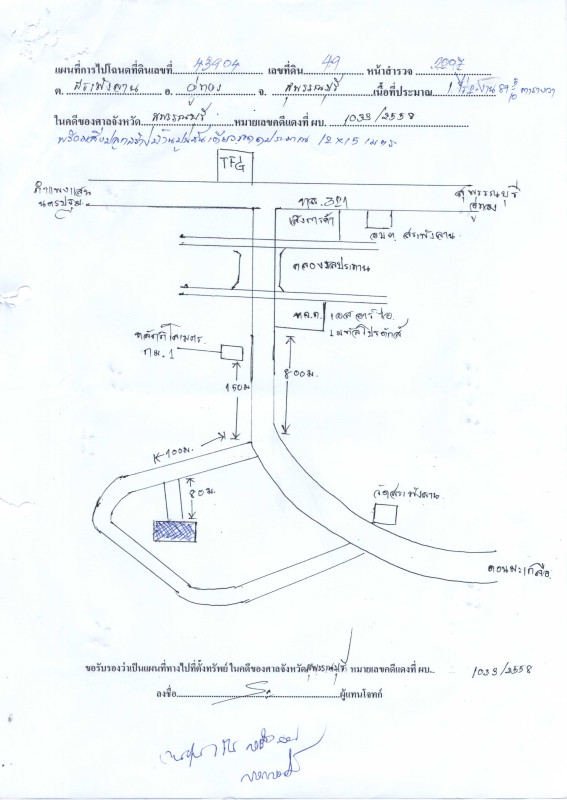 แผนที่การไปโฉนดที่ดินเลขที่ 43904 เลขที่ดิน 49 หน้าสำรวจ 2007
ต. สระพังลาน อ. อู่ทอง จ. สุพรรณบุรี เนื้อที่ประมาณ 1 ไร่ 2 งาน ตารางวา
ในคดีของศาลจังหวัด สุพรรณบุรี หมายเลขคดีแดงที่ ผบ. 1033/2558
พร้อมสิ่งปลูกสร้างบ้านปูนชั้นเดียว ขนาดประมาณ 12 x 15 เมตร
TFG
กำแพงแสน
นครปฐม
ทล. 321
สุพรรณบุรี
อู่ทอง
อบต. สระพังลาน
คลองชลประทาน
หลักกิโลเมตร
กม. 1
150 ม
800 ม.
100 ม.
80 ม.
วัดสระพังลาน
ดอนมะเกลือ
ขอรับรองว่าเป็นแผนที่ทางไปที่ตั้งทรัพย์ ในคดีของศาลจังหวัด สุพรรณบุรี หมายเลขคดีแดงที่ ผบ. 1033/2558
ลงชื่อ ผู้แทนโจทก์